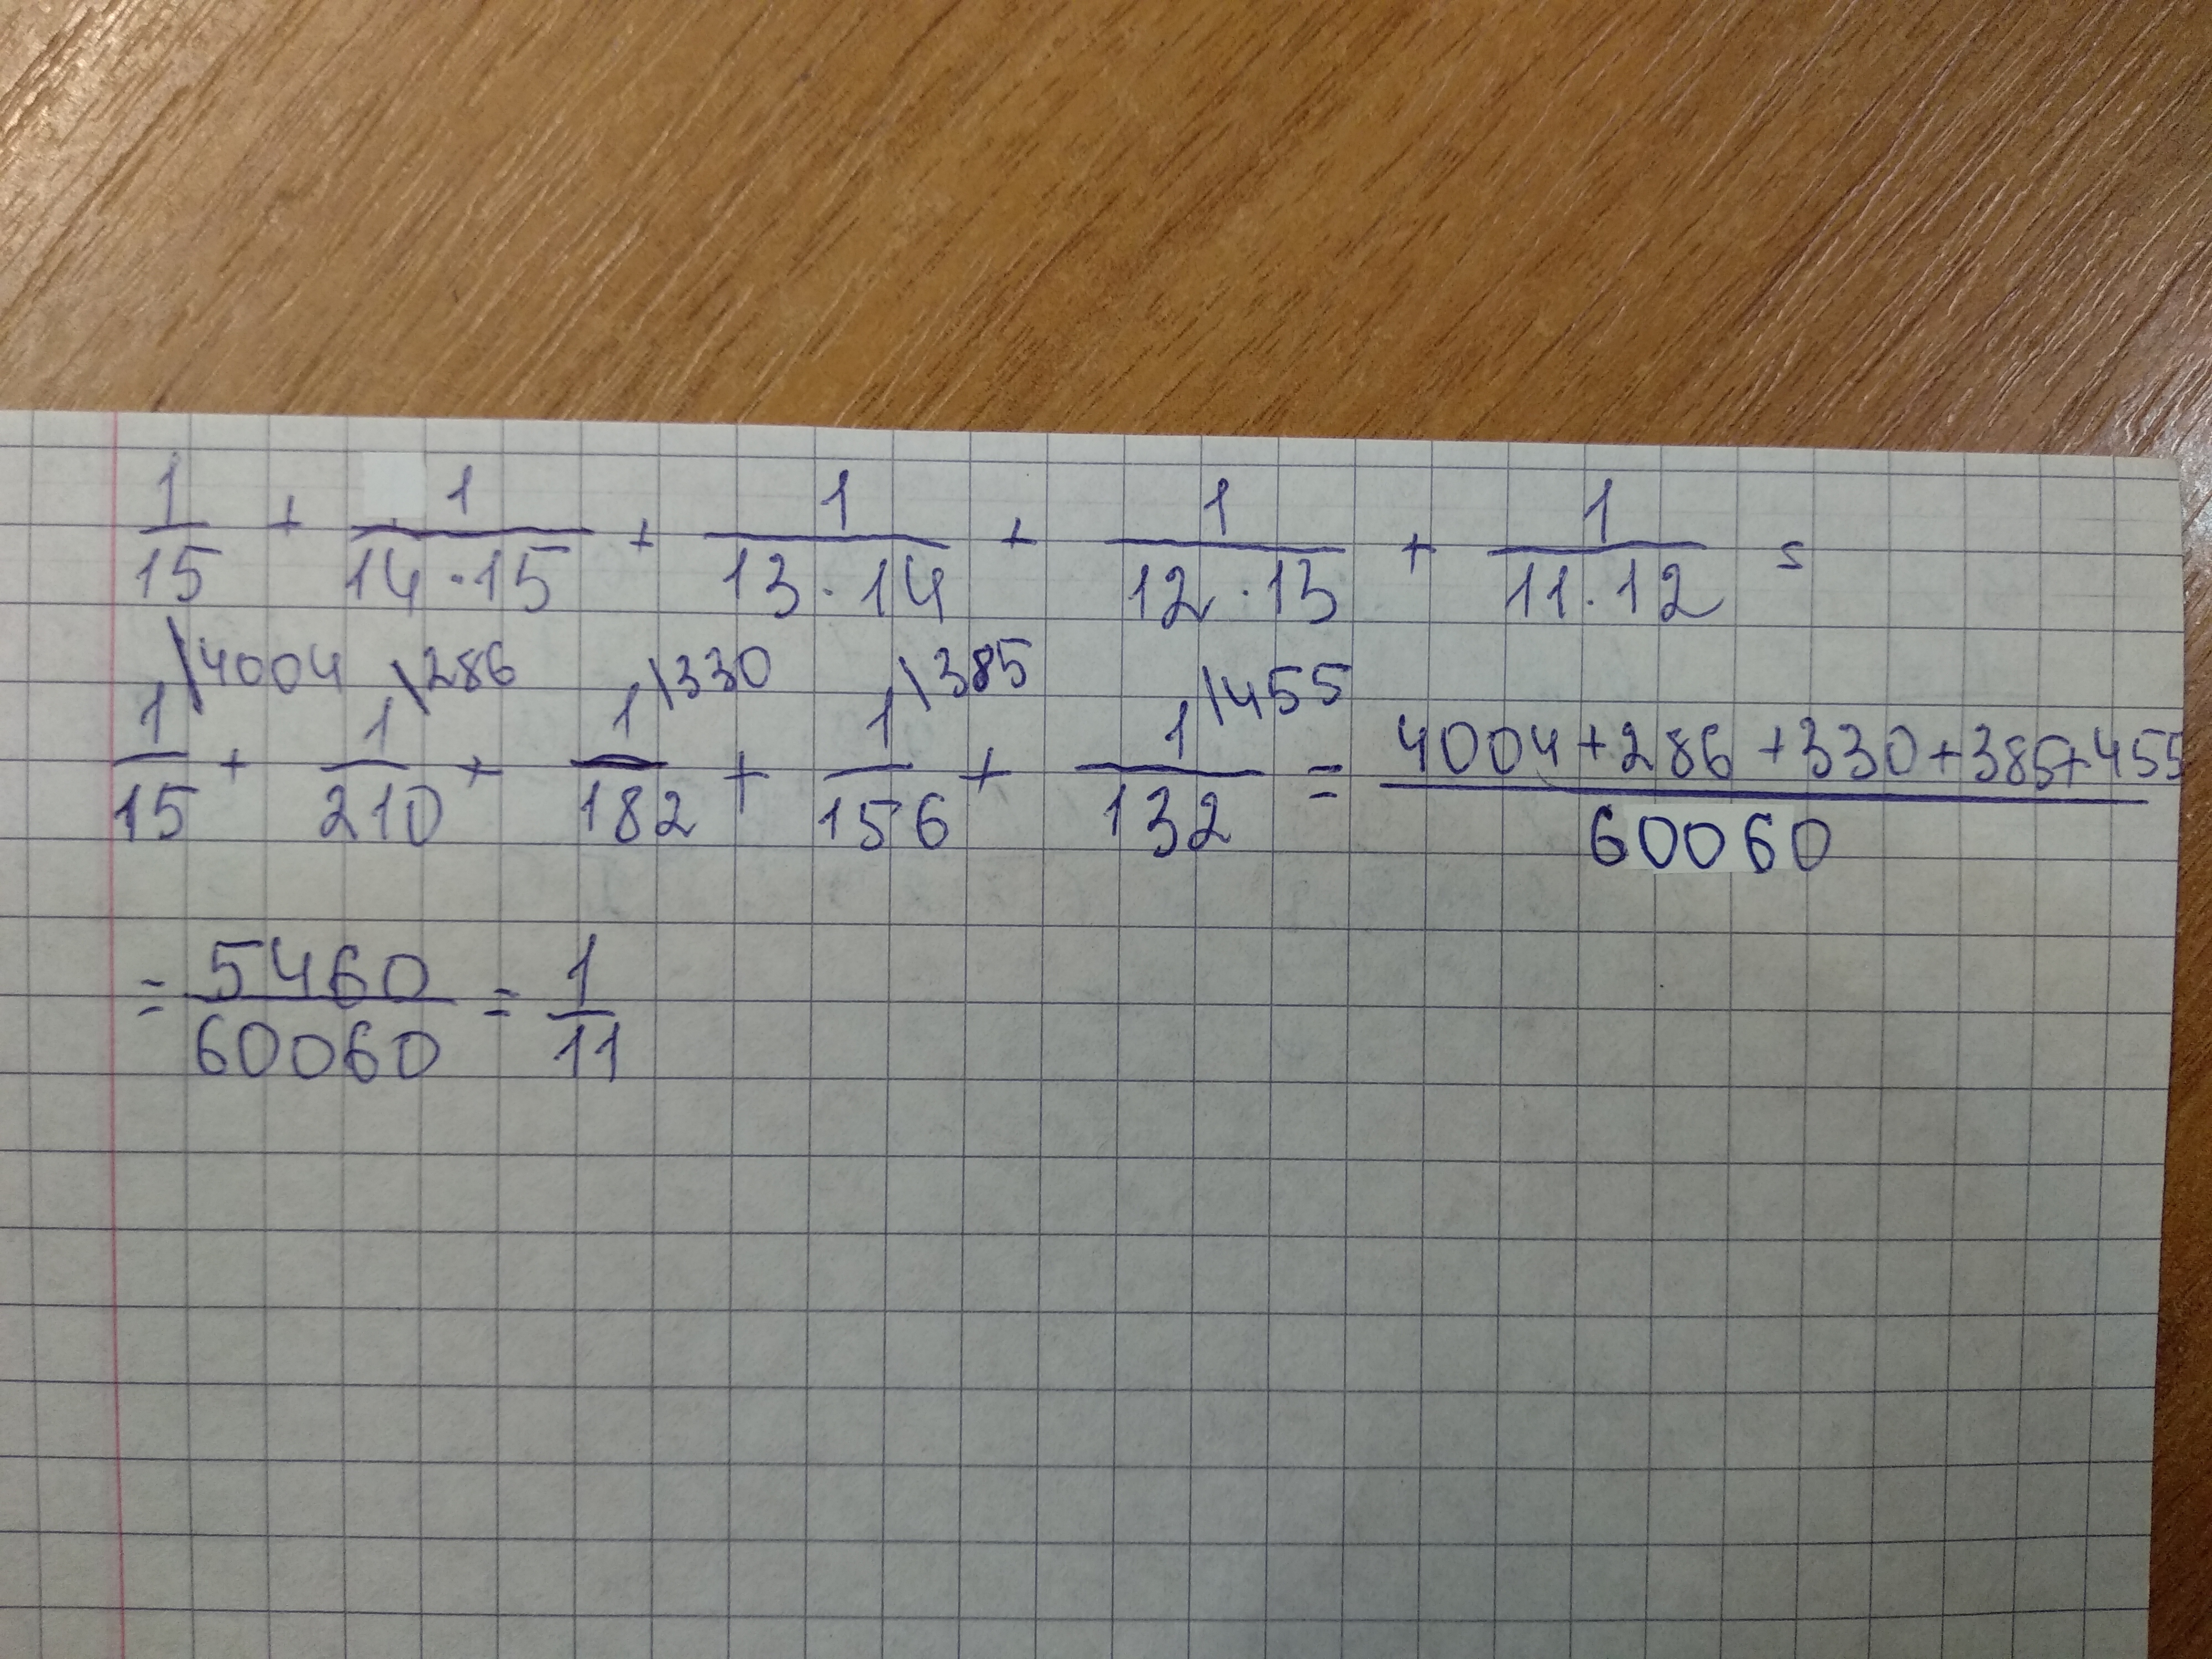 1/15 + 1/(14·15) + 1/(13·14) + 1/(12·13) + 1/(11·12) =
1\4004/15 + 1\286/210 + 1\330/182 + 1\385/156 + 1\455/132 = (4004+286+330+385+455)/60060
= 5460/60060 = 1/11